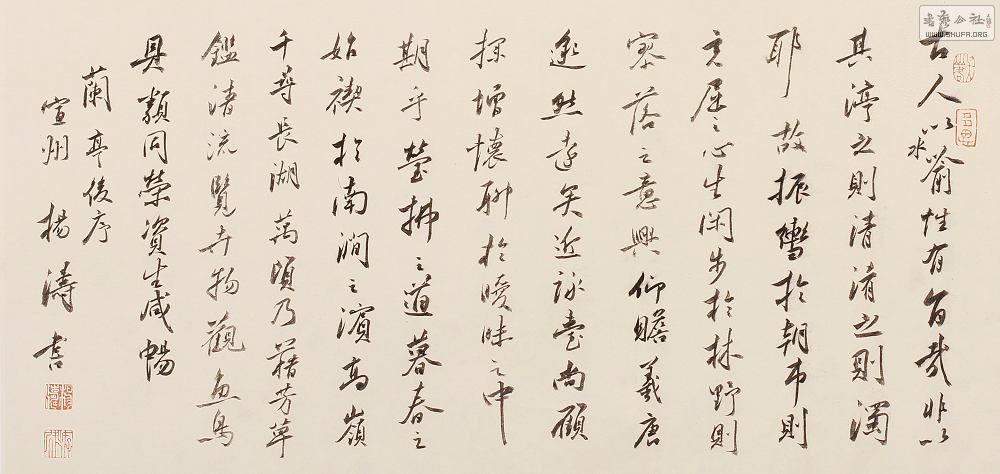 古人以水喻性有旨哉非以
其渟之則清淆之則濁
耶故振轡於朝市則
充屈之心生閑步於林野則
寥落之意興仰瞻羲唐
邈然遠矣近詠臺尚顧
探增懷聊於曖昧之中
期乎瑩拂之道暮春之
始禊於南澗之濱高嶺
千尋長湖萬頃乃藉芳草
鑑清流覽卉物觀魚鳥
具類同榮資生咸暢
蘭亭後序
宣州楊濤書
书艺公社
WWW.SHUFA.ORG